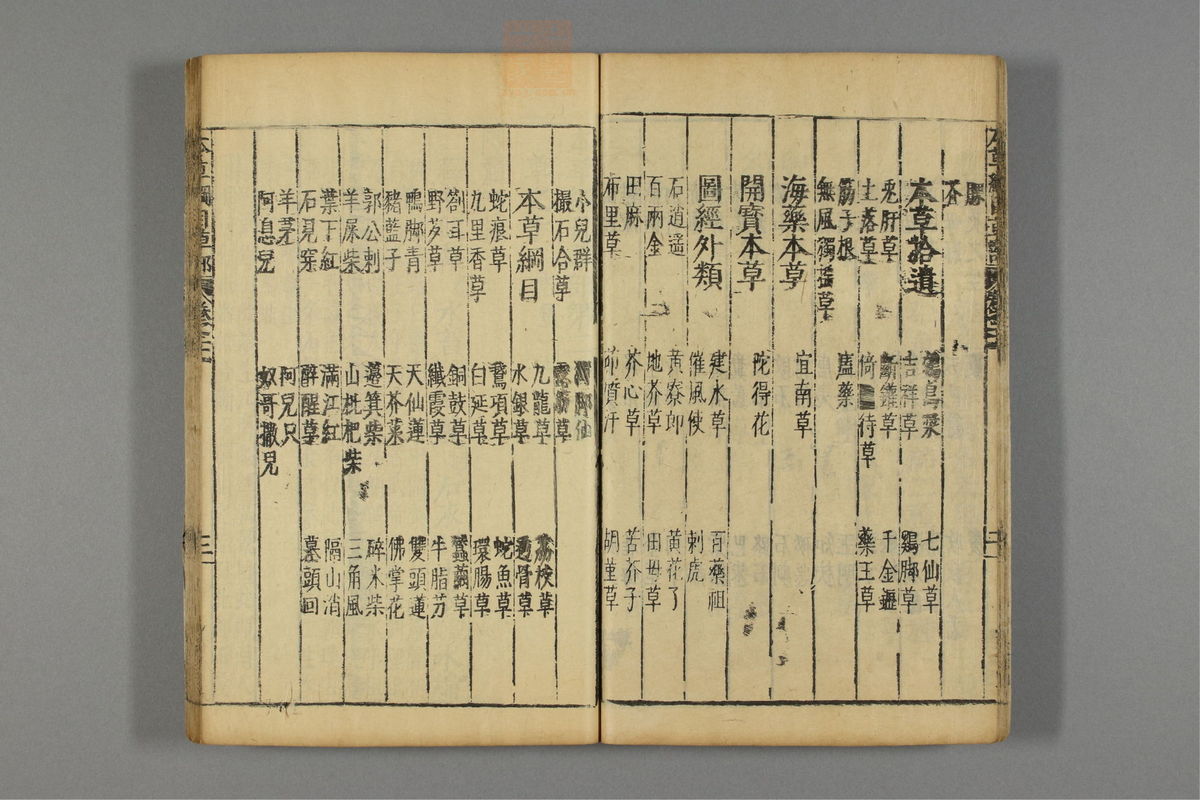 本草拾遺
鴆鳥漿 七仙草
兎肝草 吉祥草 鷄脚草
土落草 斷鑵草 千金鑷
倚待草 藥王草
筋子根 藘藥
無風獨搖草
海藥本草
宜南草
開寶本草
陀得花
圖經外類
建水草 百藥祖
石逍遥 催風使 刺虎
百兩金 黃寮郎 黃花了
地芥草 田母草
田麻 芥心草 苦芥子
布里草 茆質汗 胡堇草
小兒群 仙
撮石合草 草
本草綱目
九龍草 荔枝草
水銀草 透骨草
蛇痕草 鵞項草 蛇魚草
九里香草 白延草 環腸草
劄耳草 銅鼓草 蠶繭草
野芝草 纖霞草 牛脂芳
鴨脚青 天仙蓮 雙頭蓮
豬藍子 天芥菜 佛掌花
郭公刺 薖箕柴 碎米柴
羊屎柴 山枇杷柴 三角風
葉下紅 滿江紅 隔山消
石見穿 醉醒草 墓頭回
羊茅 阿兒只
阿息兒 奴哥撒兒